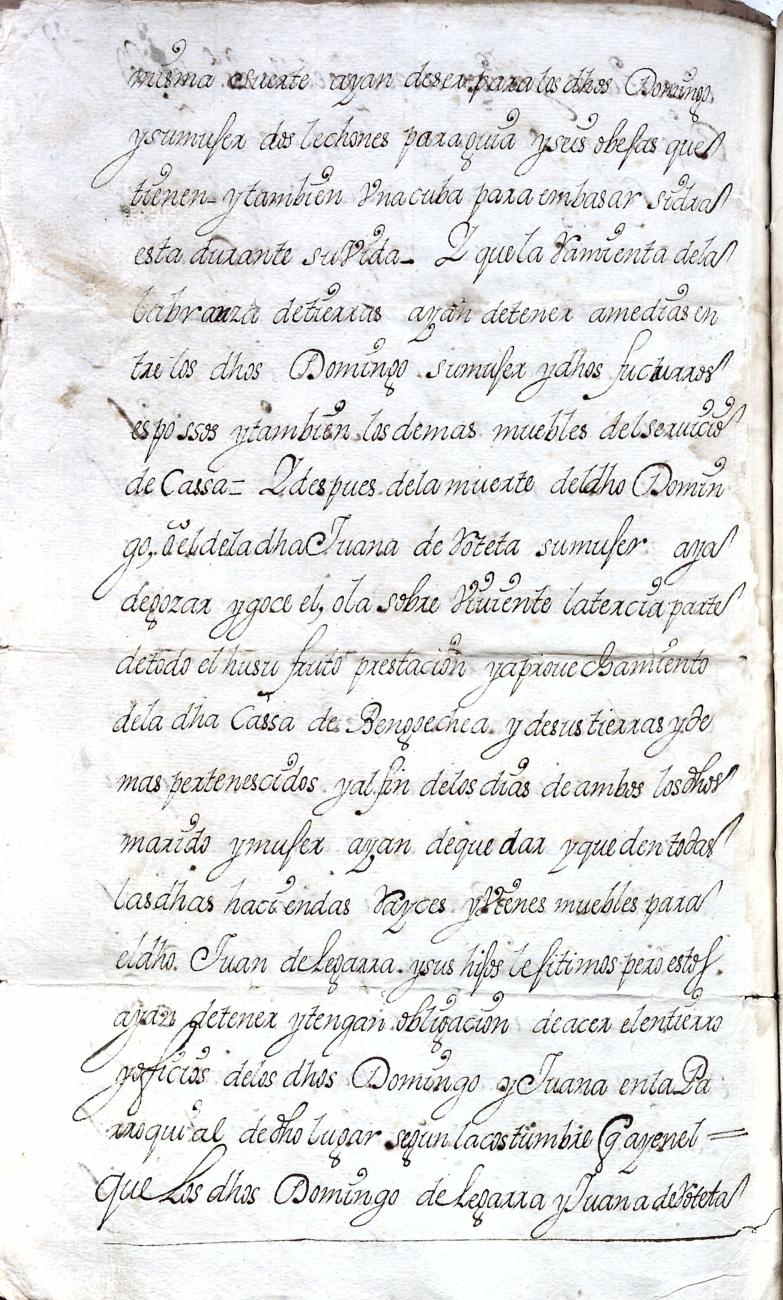 misma suerte ayan deser para los dhos Domingo
y su muJer dos lechones para guia y seis obeJas que
tienen - y tambien Vna cuba para imbasar sidra
esta durante su Vida - Y que la Ramienta dela
labranza de tierras ayan de tener a medias en
tre los dhos Domingo su muJer y dhos fucturros
espossos y tambien los demas muebles del seruicio
de Cassa = Y despues dela muerte del dho Domin
go, o el dela dha Juana de Voteta su muJer aya
de gozar y goce el, o la sobre Viuiente la tercia parte
de todo el husu fruto prestacion y aprouechamiento
dela dha Cassa de Bengoechea y de sus tierras y de
mas pertenescidos y al fin delos dias de ambos los dhos
marido y muJer ayan de quedar y queden todas
las dhas haciendas Rayces y Vienes muebles para
el dho. Juan de Legarra y sus hiJos leJitimos pero estos
ayan de tener y tengan obligacion de acer el entierro
y oficios delos dhos Domingo y Juana en la Pa
rroquial de dho lugar segun la costumbre q ay en el =
Que Los dhos Domingo de Legarra y Juana de Voteta